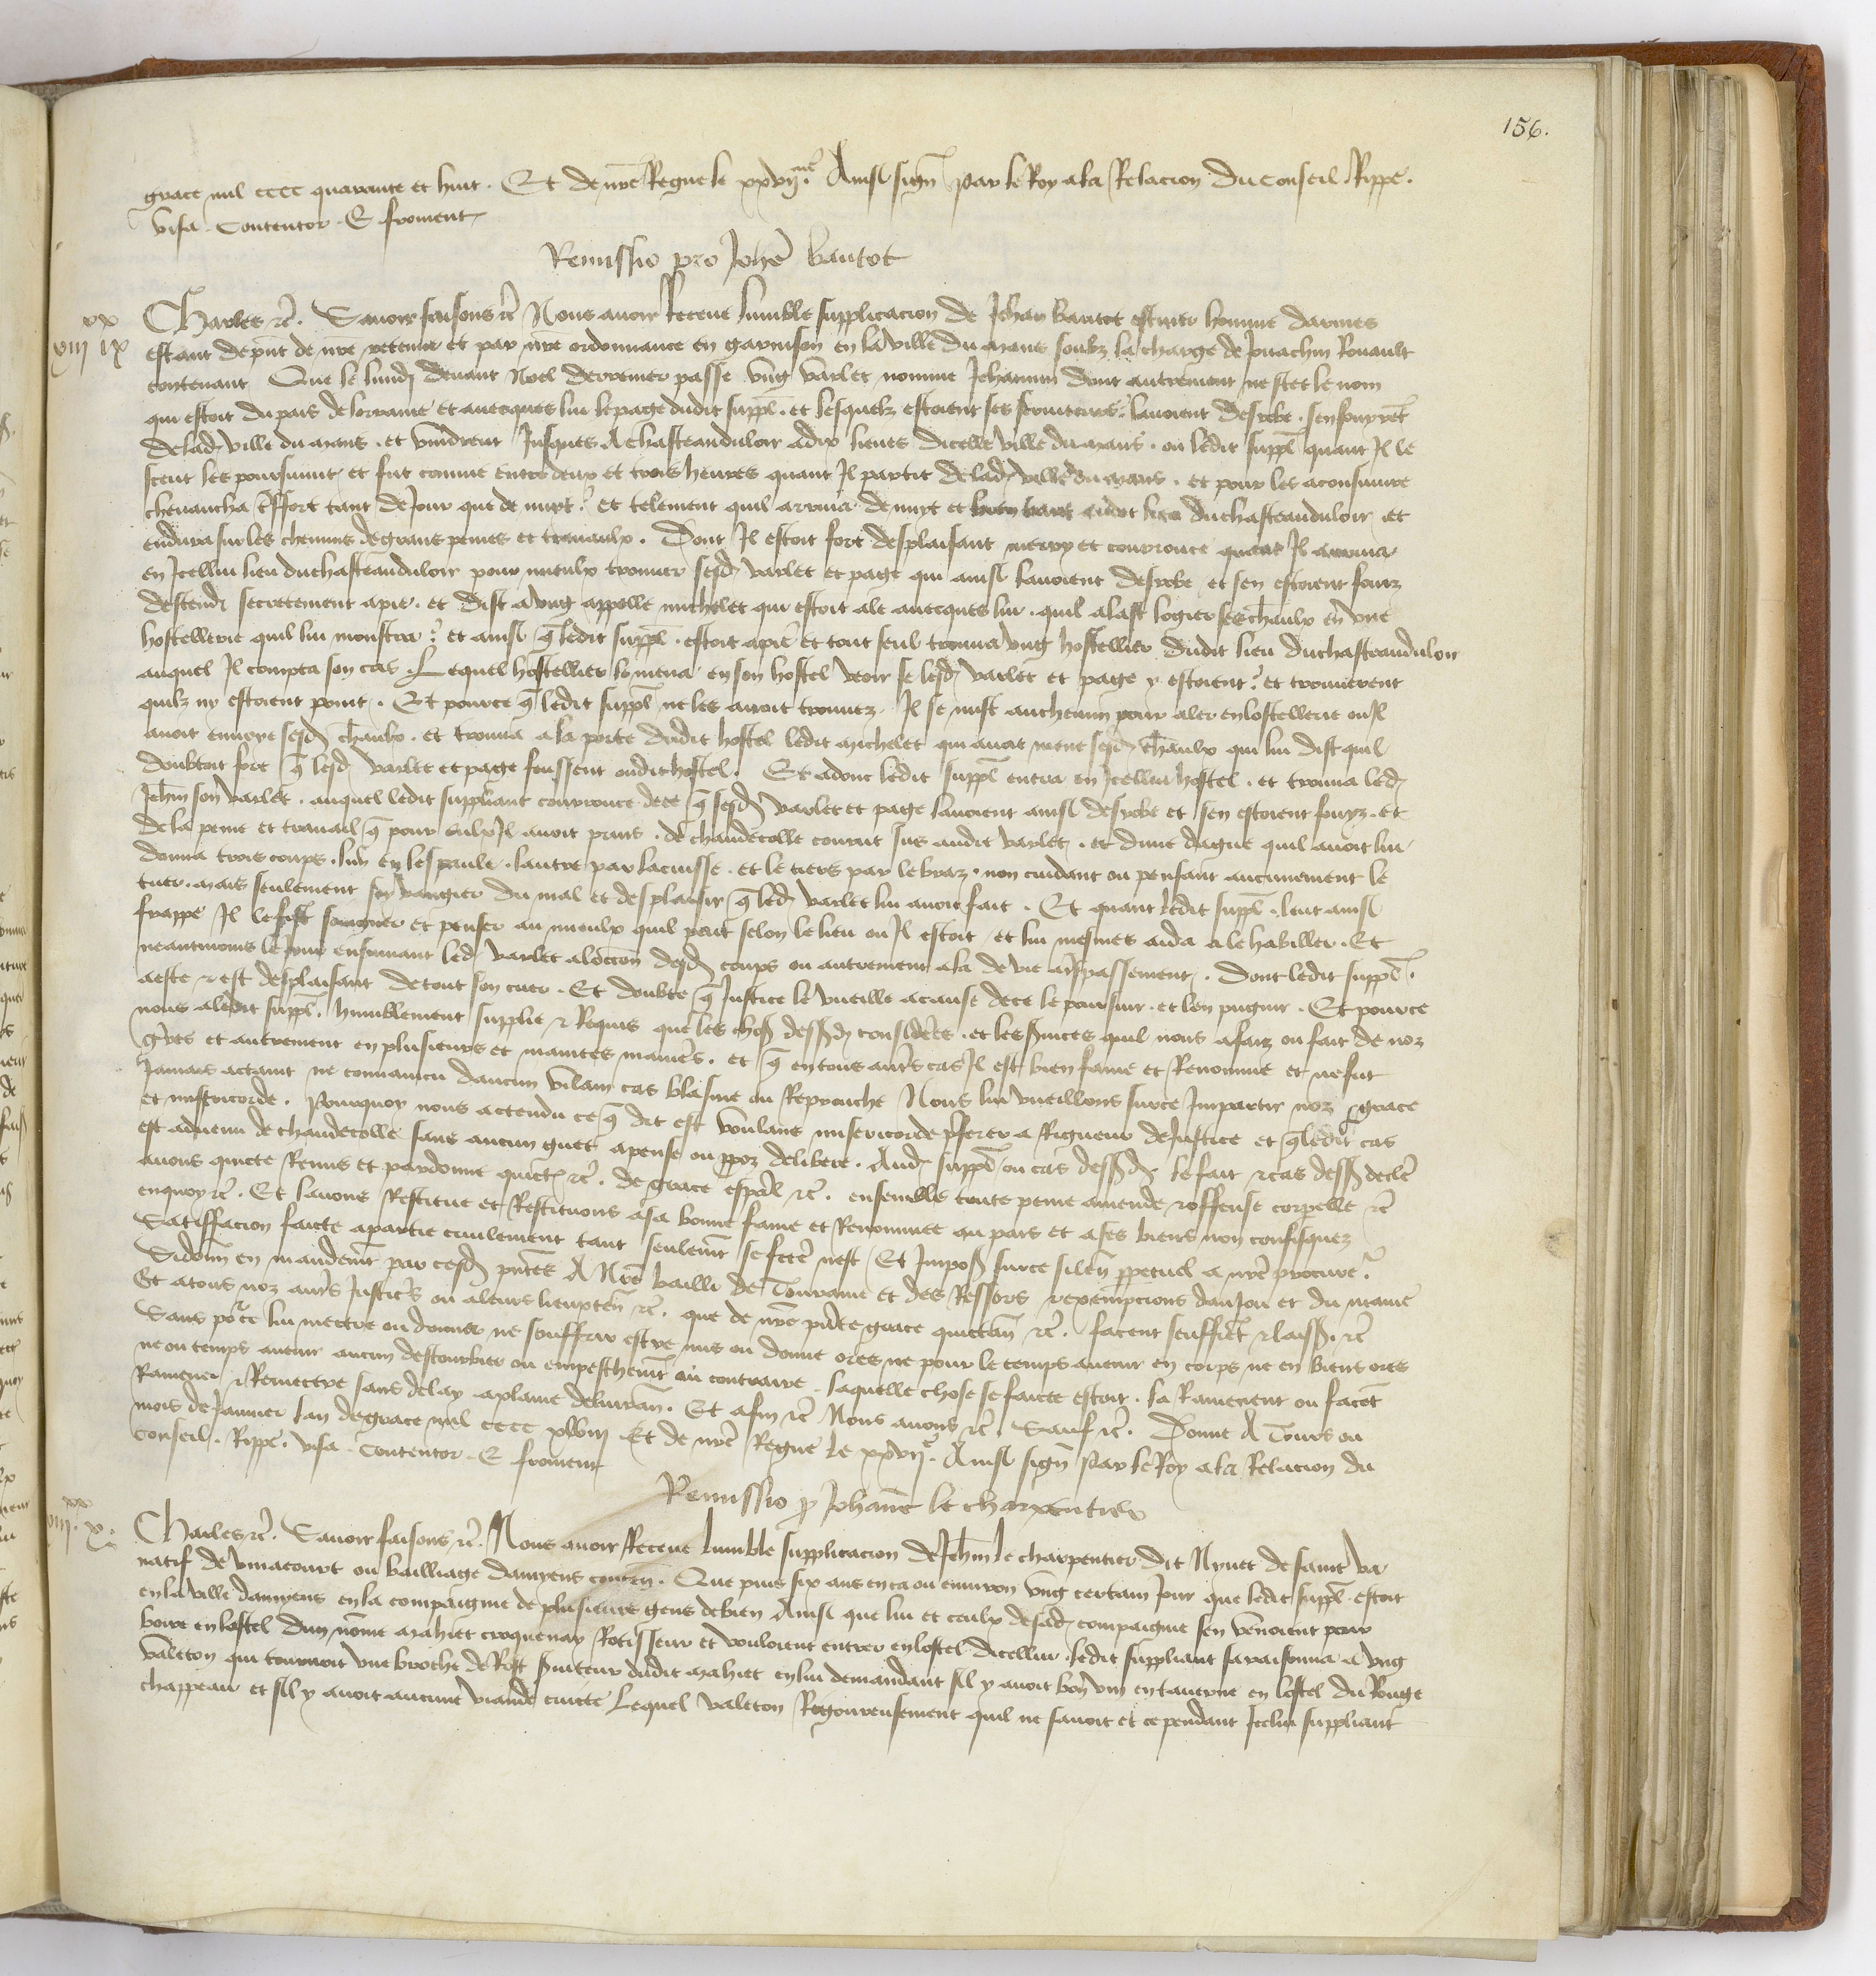 156.
grace mil cccc quarante et huit . Et de nre Regne le xxvij.me Ainsi sign par le Roy a la Relacion du conseil Rippe .
visa . Contentor . E froment
Remissio pro Johe bautot
viii xx ix
Charles rc . Sauoir faisons rc Nous auoir Receue lumble supplicacion de Jehan bautot escuier homme darmes
estant de pnt de nre retenue et par nre ordonnance en garnison en la ville du mans soubz la charge de Jouachin Rouault
contenant Que le lundj deuant Noel derrenier passe vng varlet nomme Jehannin dont autrement ne scet le nom
qui estoit du pais de lorraine et auecques lui le page dudit suppl . et lesquelz estoient ses seruiteurs lauoient desrobe . senfouyret
de lad ville du mans . et vindrent Jusques a chasteauduloir a dix lieues dicelle ville du mans . ou ledit suppl quant Jl le
sceut les poursuiuit et fut comme entre deux et trois heures quant Jl partit de lad ville du mans . et pour les aconsuiure
cheuaucha effort tant de Jour que de nuyt et telement quil arriua de nuyt et bien tart audit lieu du chasteauduloir et
endura sur les chemins de grans peines et trauaulx . Dont Jl estoit fort desplaisant marry et courrouce quant Jl arriua
en Jcellui lieu du chasteauduloir pour mieulx trouuer sesd varlet et page qui ainsi lauoient desrobe et sen estoient fouiz
descendi secretement a pie . et dist a vng appelle michelet qui estoit ale auecques lui . quil alast logier ses chaulx en vne
hostellerie quil lui monstra et ainsi q ledit suppl . estoit a pie et tout seul trouua vng hostellier dudit lieu du chasteauduloir
auquel Jl compta son cas . Lequel hostellier le mena en son hostel veoir se lesd varlet et page y estoient et trouuerent
quilz ny estoient point . Et pource q ledit suppl ne les auoit trouuez . Jl se mist au chemin pour aler en lostellerie ou Jl
auoit enuoye sesd chaulx . et trouua a la porte dudit hostel ledit michelet qui auoit mene sesd chaulx qui lui dist quil
doubtoit fort q lesd varlet et page feussent oudit hostel . Et adonc ledit suppl entra en Jcellui hostel . et trouua led
Jehn son varlet . auquel ledit suppliant courrouce de ce q sesd varlet et page lauoient ainsi desrobe et sen estoient fouyz . et
de la peine et trauail q pour eulx Jl auoit prins . de chaudecolle courut sus audit varlet . et dune dague quil auoit lui
donna trois coups . lun en lespaule . lautre par la cuisse . et le tiers par le braz . non cuidant ou pensant aucunement le
tuer . mais seulement soy vangier du mal et desplaisir q led varlet lui auoit fait . Et quant ledit suppl . leut ainsi
frappe Jl le fist seigner et penser au mieulx quil peut selon le lieu ou Jl estoit et lui mesmes aida a le habiller . Et
neantmoins le Jour ensuiuant led varlet a locton desd coups ou autrement ala de vie a trespassement . Dont ledit suppl .
a este & est desplaisant de tout son cuer . Et doubte q Justice le vueille a cause de ce le poursuir . et len pugnir . Et pource
nous a ledit suppl . humblement supplie & Requis que les chos dessusd considerees . et les seruices quil nous a faiz ou fait de noz
gres et autrement en plusieurs et maintes manies . et q en tous autrs cas Jl est bien fame et Renomme et ne fut
Jamais actaint ne conuaincu daucun vilain cas blasme ou Reprouche Nous lui vueillons sur ce Impartir noz grace
et misericorde . Pourquoy nous actendu ce q dit est voulans misericorde pferer a Rigueur de Justice et q ledit cas
est aduenu de chaudecolle sans aucun guet apense ou ppoz delibere . Aud suppl ou cas dessusd le fait & cas dess decle
auons quicte Remis et pardonne quictos rc . de grace espal rc . ensemble toute peine amende & offense corpelle rc
enquoy rc . Et lauons Restitue et Restituons a sa bonne fame et Renommee au pais et a ses biens non confisquez
Satisfacion faicte a partie ciuilement tant seulemt se fcte nest Et Imposs sur ce silen ppetuel a nre procure
Sidonn en mandemt par cesd pntes A Nre bailli de Touraine et des Ressors & exempcions danjou et du maine
Et a tous noz autrs Justic's ou a leurs lieuxten rc . que de nre pnte grace quictan rc . facent seuffret & laiss . rc
Sans po ce lui mectre ou donner ne souffrir estre mis ou donne ores ne pour le temps auenir en corps ne en biens ores
ne ou temps auenir aucun destourbier ou empeschemt au contraire . laquelle chose se faicte estoit . la Ramenent ou facet
Ramener & Remectre sans delay a plaine deliuran . Et afin rc Nous auons rc . Sauf rc . Donne A Tours ou
mois de Januier lan de grace mil cccc xlviij Et de nre Regne le xxvije . Ainsi sign Par le Roy a la Relacion du
conseil . Rippe . visa . Contentor . E froment
Remissio p Johane le charpentier
viii xx x .
Charles rc . Sauoir faisons rc . Nous auoir Receue lumble supplicacion de Jehn le charpentier dit Nynet de saint va
natif de vinacourt ou bailliage damyens conten . Que puis six ans en ca ou enuiron vng certain Jour que ledit suppl . estoit
en la ville damyens en la compaignie de plusieurs gens de bien Ainsi que lui et ceulx de sad compaignie sen venoient pour
boire en lostel dun nome mahiet croquenay Rotisseur et vouloient entrer en lostel dicellui . ledit suppliant saraisonna a vng
valeton qui tournoit vne broche de Rost seruiteur dudit mahiet en lui demandant sil y auoit bon vin en tauerne en lostel du Rouge
chappeau et sil y auoit aucune viande cuicte Lequel valeton Rigoureusement quil ne sauoit et ce pendant Jcellui suppliant